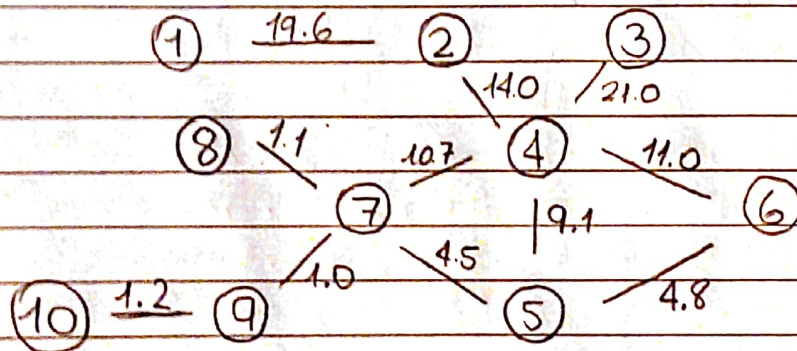 1 19.6 2 3
14.0 21.0
8 1.1 10.7 4 11.0
7 9.1 6
1.0 4.5 4.8
10 1.2 9 5